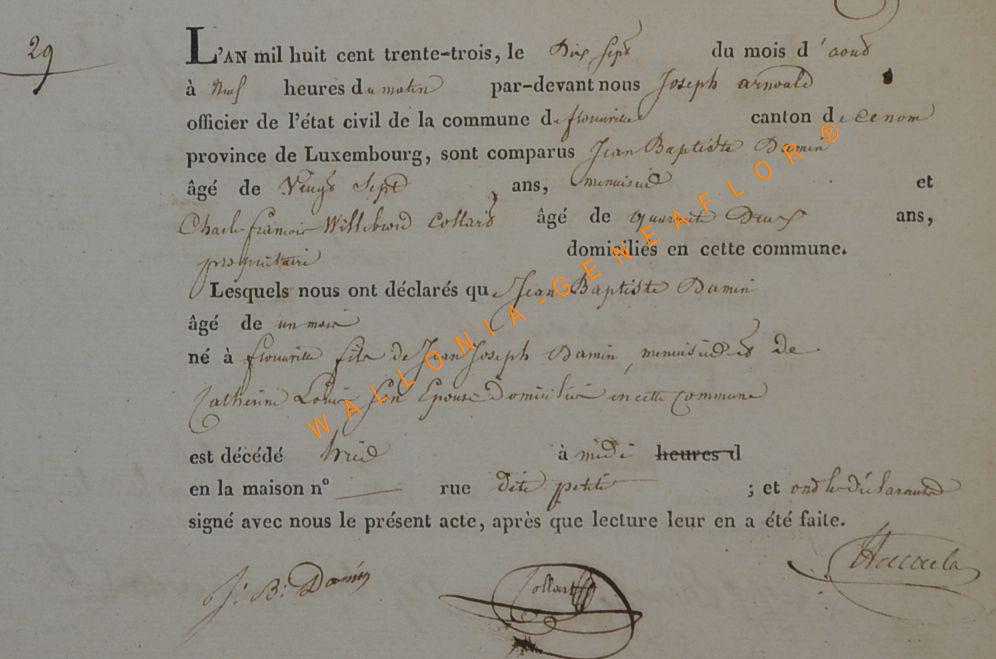 29
L'AN mil huit cent trente-trois, le Dix sept du mois d'aout
à Neuf heures du matin par-devant nous Joseph arnould
officier de l'état civil de la commune de florenville canton de
province de Luxembourg, sont comparus Jean Baptiste Damin
âgé de Vingt Sept ans, menuisier et
Charle francois Willibrord Collard âgé de quarante Deux ans,
propriétaire domiciliés en cette commune.
Lesquels nous ont déclarés que Jean Baptiste Damin
âgé de un mois
né à florenville fils de Jean Joseph Damin, menuisier et de
Catherine Louis son Epouse Domiciliés en cette Commune
est décédé hier à midi heures d
en la maison n° — rue dite petite ; et ont les déclarants
signé avec nous le présent acte, après que lecture leur en a été faite.
J. B. Damin Collard
WALLONIA-GENEAFLOR®